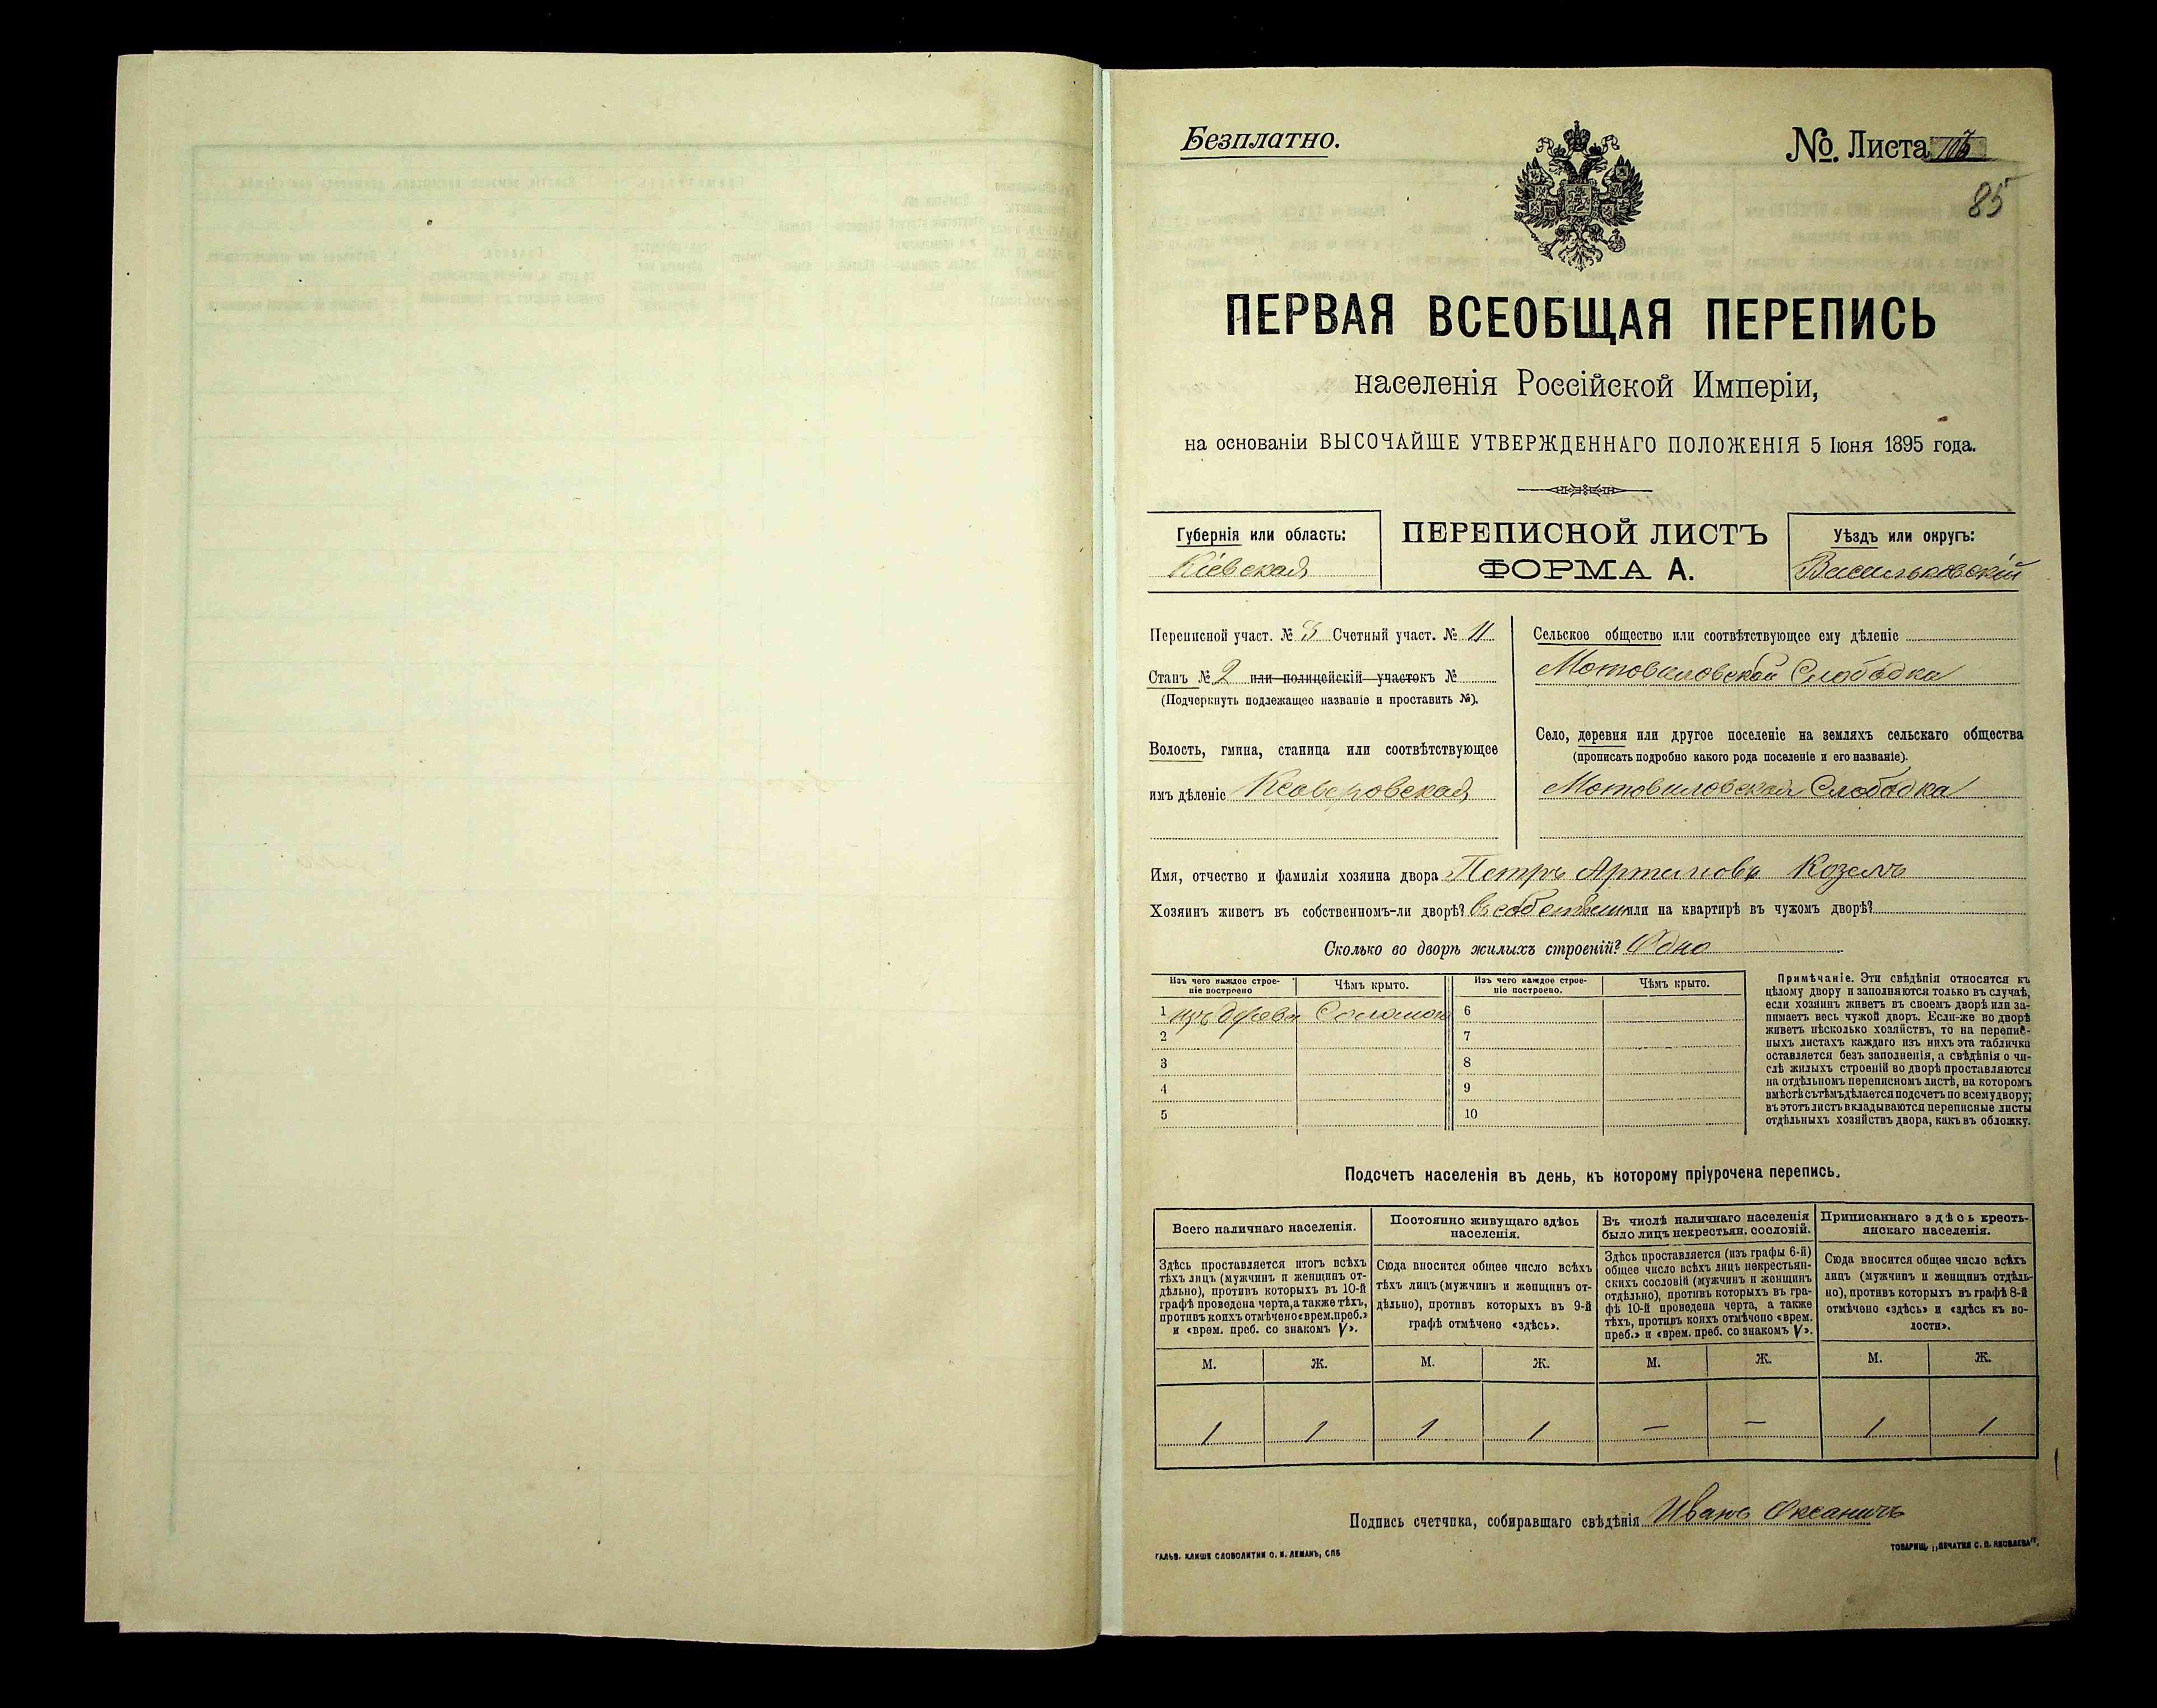 Безплатно.
№. Листа 103
85
ПЕРВАЯ ВСЕОБЩАЯ ПЕРЕПИСЬ
населенія Россійской Имперіи,
на основаніи ВЫСОЧАЙШЕ УТВЕРЖДЕННАГО ПОЛОЖЕНІЯ 5 Іюня 1895 года.
Губернія или область:
Кіевская
ПЕРЕПИСНОЙ ЛИСТЪ
ФОРМА А.
Уѣздъ или округъ:
Васильковскій
Переписной участ. № 3 Счетный участ. № 11
Станъ № 2 или полицейскій участокъ №
(Подчеркнуть подлежащее названіе и проставить №).
Волость, гмина, станица или соотвѣтствующее
имъ дѣленіе Ксаверовская
Сельское общество или соотвѣтствующее ему дѣленіе
Мотовиловской Слободка
Село, деревня или другое поселеніе на земляхъ сельскаго общества
(прописать подробно какого рода поселеніе и его названіе).
Мотовиловская Слободка
Имя, отчество и фамилія хозяина двора Петръ Артемовъ Козелъ
Хозяинъ живетъ въ собственномъ-ли дворѣ? въ собственн или на квартирѣ въ чужомъ дворѣ?
Сколько во дворѣ жилыхъ строеній? Одно
Изъ чего каждое строе-
ніе построено
Чѣмъ крыто.
Изъ чего каждое строе-
ніе построено.
Чѣмъ крыто.
1 изъ дерева Соломой 6
2 7
3 8
4 9
5 10
Примѣчаніе. Эти свѣдѣнія относятся къ
цѣлому двору и заполняются только въ случаѣ,
если хозяинъ живетъ въ своемъ дворѣ или за-
нимаетъ весь чужой дворъ. Если-же во дворѣ
живетъ нѣсколько хозяйствъ, то на перепис-
ныхъ листахъ каждаго изъ нихъ эта табличка
оставляется безъ заполненія, а свѣдѣнія о чи-
слѣ жилыхъ строеній во дворѣ проставляются
на отдѣльномъ переписномъ листѣ, на которомъ
вмѣстѣ съ тѣмъ дѣлается подсчетъ по всему двору;
въ этотъ листъ вкладываются переписные листы
отдѣльныхъ хозяйствъ двора, какъ въ обложку.
Подсчетъ населенія въ день, къ которому пріурочена перепись.
Всего наличнаго населенія.
Постоянно живущаго здѣсь
населенія.
Въ числѣ наличнаго населенія
было лицъ некрестьян. сословій.
Приписаннаго здѣсь кресть-
янскаго населенія.
Здѣсь проставляется итогъ всѣхъ
тѣхъ лицъ (мужчинъ и женщинъ от-
дѣльно), противъ которыхъ въ 10-й
графѣ проведена черта, а также тѣхъ,
противъ коихъ отмѣчено «врем. преб.»
и «врем. преб. со знакомъ V».
Сюда вносится общее число всѣхъ
тѣхъ лицъ (мужчинъ и женщинъ от-
дѣльно), противъ которыхъ въ 9-й
графѣ отмѣчено «здѣсь».
Здѣсь проставляется (изъ графы 6-й)
общее число всѣхъ лицъ некрестьян-
скихъ сословій (мужчинъ и женщинъ
отдѣльно), противъ которыхъ въ гра-
фѣ 10-й проведена черта, а также
тѣхъ, противъ коихъ отмѣчено «врем.
преб.» и «врем. преб. со знакомъ V».
Сюда вносится общее число всѣхъ
лицъ (мужчинъ и женщинъ отдѣль-
но), противъ которыхъ въ графѣ 8-й
отмѣчено «здѣсь» и «здѣсь къ во-
лости».
М. Ж. М. Ж. М. Ж. М. Ж.
1 1 1 1 — — 1 1
Подпись счетчика, собиравшаго свѣдѣнія Иванъ Оксаничъ
ГАЛЬВ. КЛИШЕ СЛОВОЛИТНИ О. И. ЛЕМАНЪ, СПБ
ТОВАРИЩ. „ПЕЧАТНЯ С. П. ЯКОВЛЕВА“.